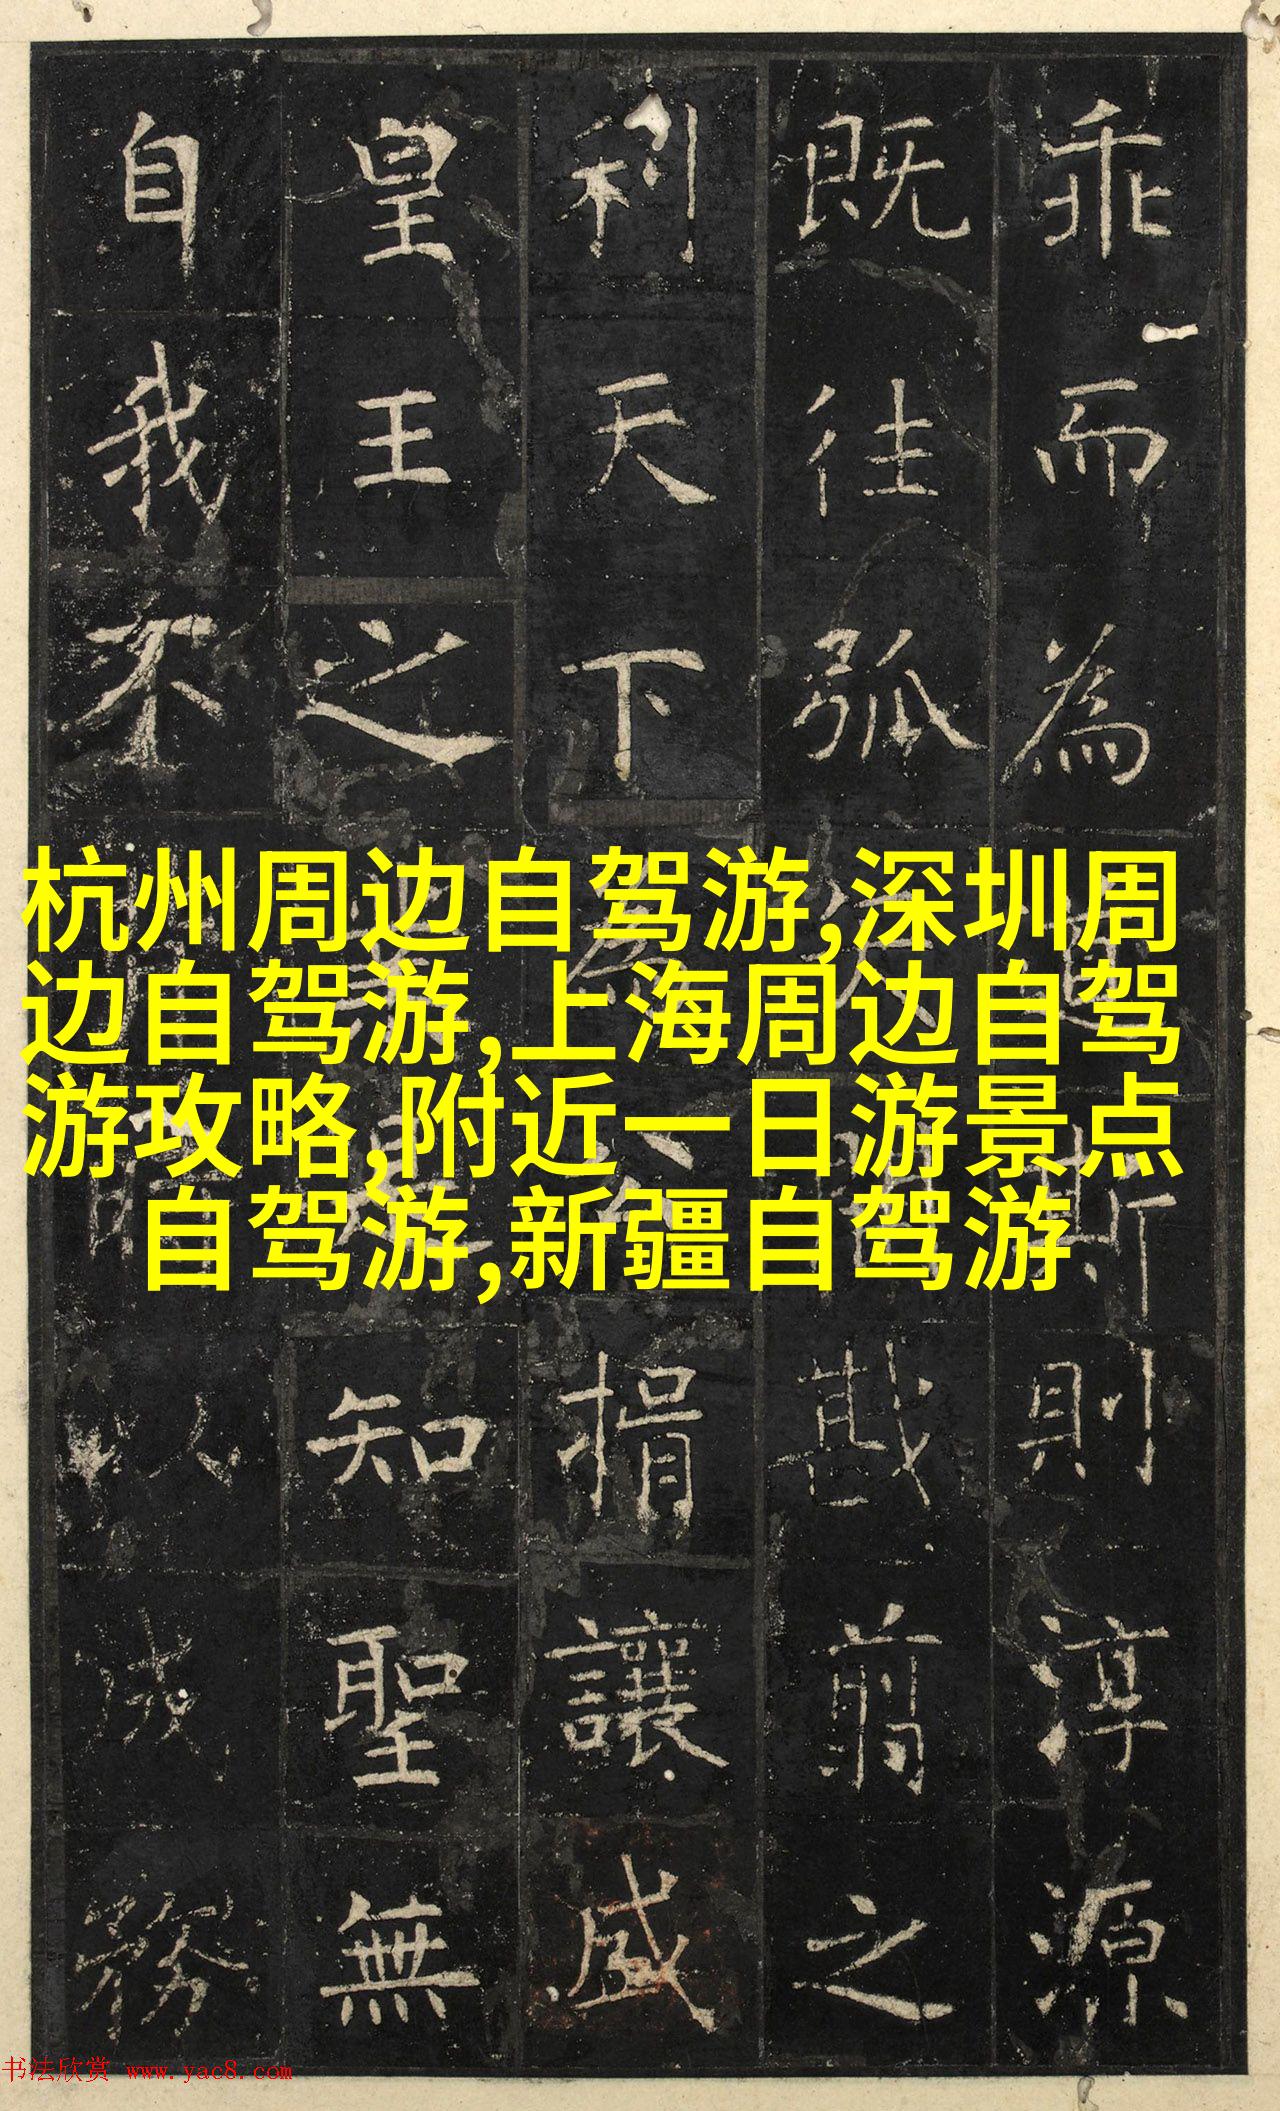 乖而為斯則淳源
既往弧戡翦之
利天下為捐讓盛
皇王之知聖無
自我不以成務
杭州周边自驾游,深圳周
边自驾游,上海周边自驾
游攻略,附近一日游景点
自驾游,新疆自驾游
书法欣赏 www.yac8.com